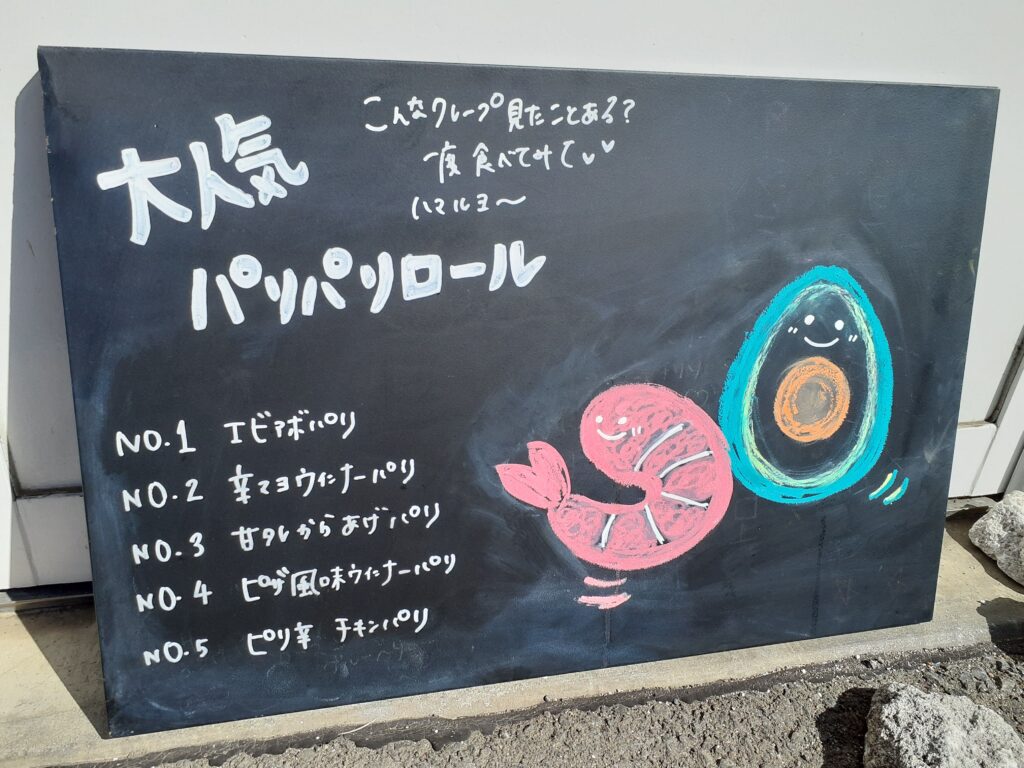 こんなクレープ見たことある?
一度食べてみて
ハマルヨ〜
大人気
パリパリロール
NO.1 エビアボパリ
NO.2 辛マヨウィンナーパリ
NO.3 甘タレからあげパリ
NO.4 ピザ風味ウィンナーパリ
NO.5 ピリ辛 チキンパリ